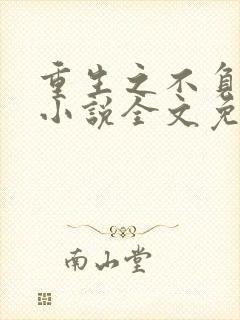 重生之不负
小说全文免
南山堂